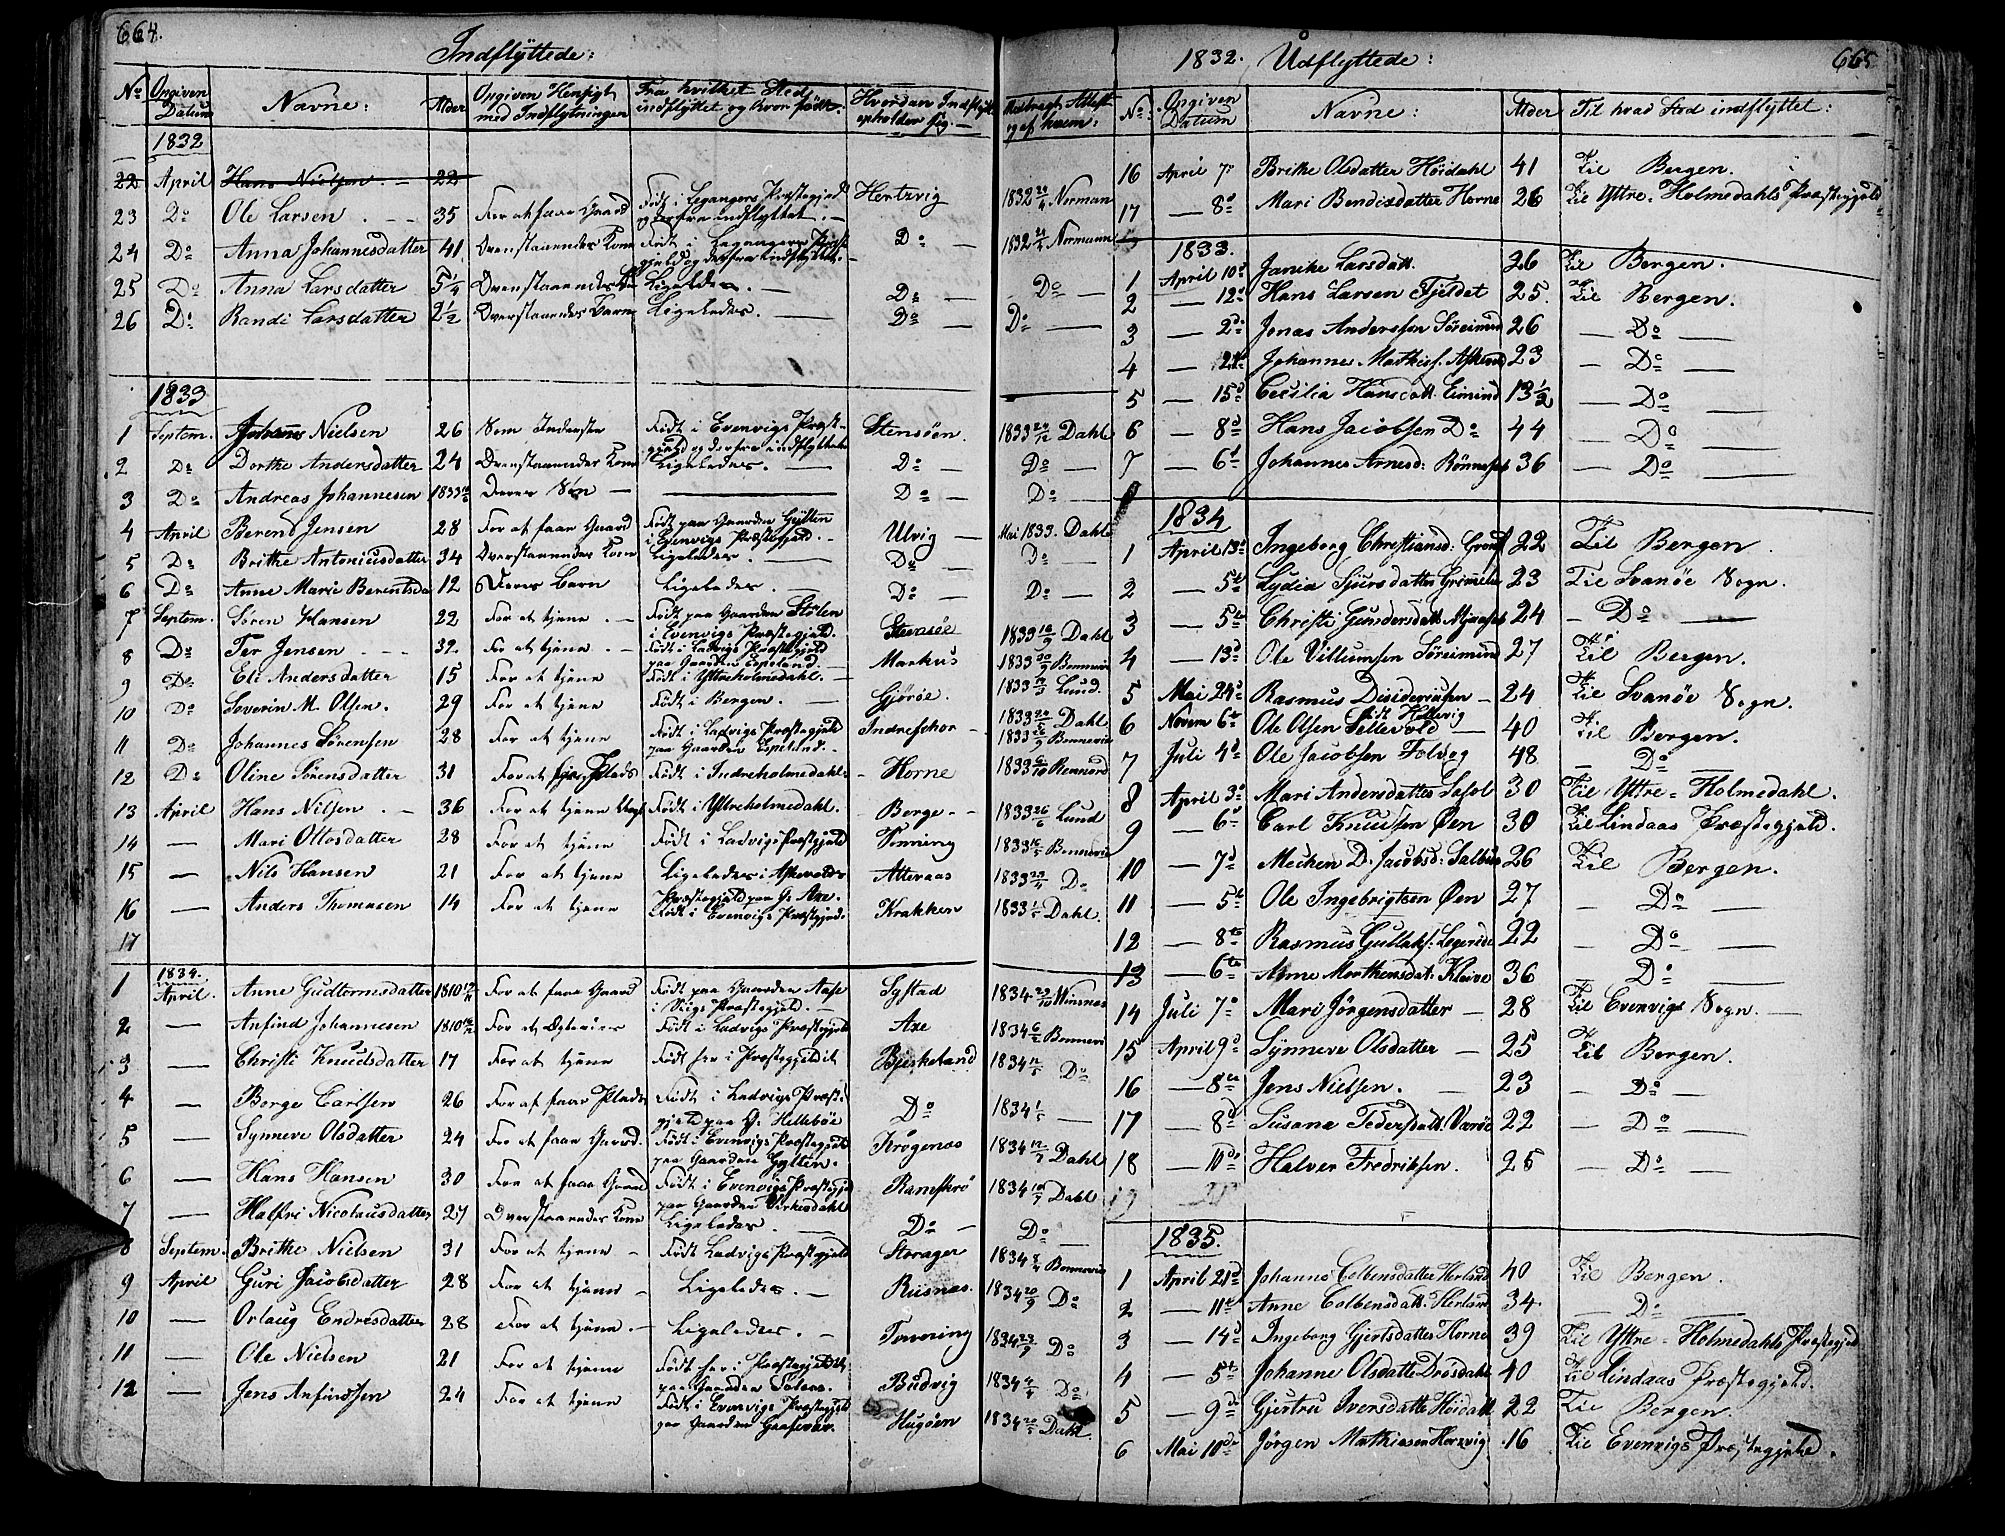 664.
Indflÿttede:
No Opgiven Datum Navne: Alder Opgiven Hensigt med Indflytningen Fra hvilket Sted indflÿttet og hvor født. Hvordan Indflÿtte opholder sig Medbragt Attest og af hvem:
1832
22 April Hans Nielsen. 22
23 Do Ole Larsen 35 For at faae Gaard Født i Leganger Præstegjeld og derfra indflyttet. Hertzvig 1832 Norman
24 Do Anna Johannesdatter 41 Ovenstaaendes Kone Født i Leganger Præstegjeld og derfra indflyttet. Do 1832 Normann
25 Do Anna Larsdatter 5 1/4 Ovenstaaendes Ligeledes. Do Do
26 Do Randi Larsdatter 2 1/2 Overstaaendes Barn Ligeledes. Do Do
1833
1 Septem. Johannes Nielsen 26 Som Inderste Født i Evenvigs Præstegjeld og derfra indflyttet Stensøen. 1833 Dahl
2 Do Dorthe Andersdatter 24 Ovenstaaendes Kone Ligeledes. Do Do
3 Do Andreas Johannesen 1833 Deres Søn Do Do
4 April Berend Jensen 28 For at faae Gaard Født paa Gaarden Gjilten i Evenvigs Præstegjeld. Ulvig Mai 1833. Dahl
5 Do Brithe Antoniusdatter 34 Overstaaendes Kone Ligeledes. Do Do
6 Do Anne Marie Berentsda 12 Deres Barn Ligeledes Do Do
7 Septem. Søren Hansen 22 For at tjene Født paa Gaarden Stølen i Evenvigs Præstegjeld. Stensøe 1833 Dahl
8 Do Ter Jensen 32 For at tjene Født i Ladvigs Præstegjeld paa Gaarden Espeland. Markus 1833 Bonnevie
9 Do Eli Andersdatter 15 For at tjene Født i Yttreholmedahl. Gjørøe. 1833 Lund.
10 Do Severin M. Olsen. 29 For at tjene Født i Bergen. 1833 Dahl
11 Do Johannes Sørensen 28 For at tjene Født i Ladvigs Præstegjeld paa Gaarden Espeland. Indreschor 1833 Bonnevie
12 Do Oline Sørensdatter 31 For at Plads Født i Indreholmedahl Horne 1833
13 April Hans Nilsen 36 For at tjene Født i Yttreholmedahl. Berge 1833 Lund
14 — Mari Ottosdatter 28 For at tjene Født i Ladvigs Præstegjeld Tonning 1833 Bonnevie
15 — Nils Hansen 21 For at tjene Ligeledes i Askevolds Præstegjeld paa G. Axe. Alteraas 1833 Do
16 — Anders Thomasen 14 For at tjene Født i Evenvigs Præstegjeld. Krakken 1833 Dahl.
17
1834.
1 April. Anne Gudtormsdatter 1810 For at faae Gaard Født paa Gaarden Aase i Præstegjeld. Systad 1834
2 — Anfind Johannesen 1810 For at Født i Ladvigs Præstegjeld Axe 1834 Bonnevi
3 — Christi Knudsdatter 17 For at tjene Født her i Præstegjeldet Bjerkeland 1834 Do
4 — Børge Carlsen 26 For at faae Plads Født i Ladvigs Præstegjeld paa G. Hellebøe Do 1834 —
5 — Synneve Olsdatter 24 For at faae Gaard. Født i Evenvigs Præstegjeld paa Gaarden Gylten. Krøgenaas 1834 Dahl
6 — Hans Hansen 30 For at faae Gaard Født i Evenvigs Præstegjeld paa Gaarden Virkesdahl Ramskrö 1834 Dahl
7 — Halfri Nicolausdatter 27 Overstaaendes Kone Ligeledes Do Do
8 Septem. Brithe Nielsen 31 For at tjene Født Ladvigs Præstegjeld Storager 1834 Bonnevie
9 April Guri Jacobsdatter 28 For at tjene Ligeledes. Risnæs. 1834 Do
10 — Orlaug Endresdatter 28 For at tjene. Ligeledes. Tonning 1834 Do
11 — Ole Nielsen 21 For at tjene Født her i Præstegjeldet paa Gaarden Solem. Budvig 1834 Do
12 — Jens Anfindsen 24 For at tjene Født i Evenvigs Præstegjeld paa Gaarden Gaasevær. Hugøen 1834 Dahl.
665
1832. Udflyttede:
No Opgiven Datum Navne: Alder Til hvad Sted indflyttet:
16 April 7 Brithe Olsdatter Høidahl 41 Til Bergen.
17 — 8 Mari Bendisdatter Horne 26 Til Yttre-Holmedahls Præstegjeld
1833.
1 April 10 Janike Larsdatt. 26 Til Bergen.
2 — 12 Hans Larsen Fjeldet 25. Til Bergen.
3 — 2 Jonas Anderssen Søreimund 26 — Do
4 — 24 Johanne Mathies. 23 — Do
5 — 15 Cecilia Hansdatt. Eimind 13 1/2 — Do
6 — 8 Hans Jacobsen Do 44 — Do
7 — 6 Johannes Arnesd: Rönneset 36 — Do
1834
1 April 13 Ingeborg Christiansd: 22 Til Bergen.
2 — 5 Lydia Sjursdatter 23 Til Svanöe Sogn.
3 — 5 Christi Gundersdatt. 24 — Do
4 — 13 Ole Villumsen Söreimund 27 Til Bergen.
5 Mai 24 Rasmus Desideriusen 24 Til Svanöe Sogn.
6 Novem 6 Ole Olsen Sellevold 40 Til Bergen.
7 Juli 4 Ole Jacobsen Folvog 48 — Do
8 April 3 Mari Andersdatter 30 Til Yttre-Holmedahl.
9 — 6 Carl Knudsen Øen 30 Til Lindaas Præstegjeld.
10 — 7 Mechen D. Jacobsd: Salbu 26 Til Bergen.
11 — 5 Ole Ingebrigtsen Øen 27 — Do
12 — 8 Rasmus Gullaks: 22 — Do
13 — 6 Arne Morthensdat: Kleive 36 — Do
14 Juli 7 Mari Jörgensdatter 28 Til Evenvigs Sogn.
15 April 9 Synneve Olsdatter 25 Til Bergen.
16 — 8 Jens Nielsen. 23 — Do
17 — 8 Susana Pedersdatt. Værøe 22 — Do
18 — 10 Halver Fredriksen. 25 — Do
19
1835.
1 April 21 Johanne Colbensdatter Herland 40 Til Bergen.
2 — 11 Anne Colbensdatt. Herland 34. — Do
3 — 14 Ingeborg Gjertsdatter Horne 39 Til Yttre-Holmedahls Præstegjeld
4 — 5 Johanne Olsdatter Drösdahl 40 Til Lindaas Præstegjeld.
5 — 9 Gjertru Iversdatte Höidal 22 Til Bergen.
6 Mai 10 Jörgen Mathiasen Herzvig 16 Til Evenvigs Præstegjeld.